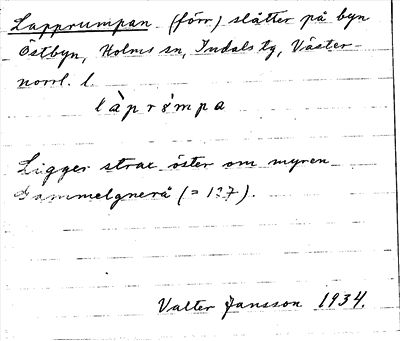 Lapprumpan (förr) slåtter på byn
Östbyn, Holms sn, Indals tg, Väster-
norrl. l.
làprömpa
Ligger strax öster om myren
Gammelgnerå (= 127).
Valter Jansson 1934.